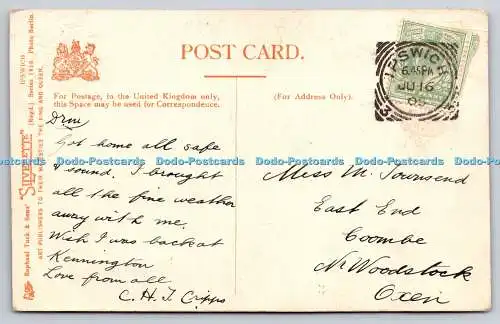 POST CARD.
For Postage, to the United Kingdom only,
this Space may be used for Correspondence.
(For Address Only).
IPSWICH
6.45PM
JU 16
Got home all safe
& sound. I brought
all the fine weather
away with me.
Wish I was back at
Kennington
Love from all
C. H. T. Cripps
Miss M. Townsend
East End
Coombe
Nr Woodstock
Oxon
Raphael Tuck & Sons' "SILVERETTE" (Regd.) Series 1916. Photo Berlin.
IPSWICH
ART PUBLISHERS TO THEIR MAJESTIES THE KING AND QUEEN.
Dodo-Postcards Dodo-Postcards Dodo-Postcards Dodo-Postcards Dodo-Postcards